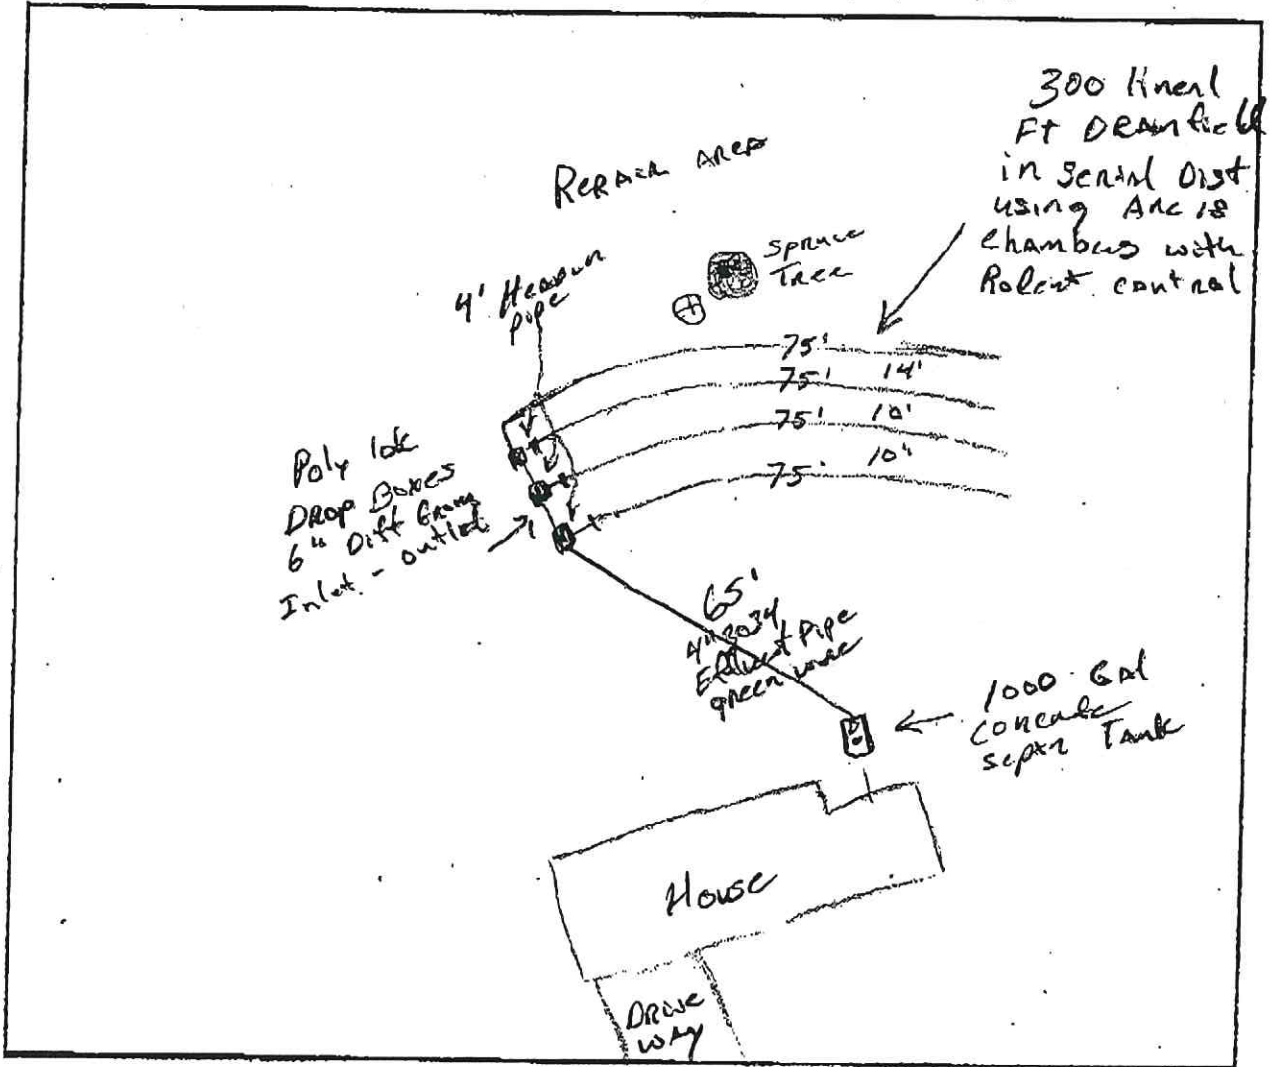 300 lineal
Ft DRAINfield
in Serial Dist
using Arc 18
chambers with
control
Repair Area
Spruce
Tree
4' Header
pipe
75'
75' 14'
75' 10'
75' 10'
Poly lok
Drop Boxes
6" Diff From
Inlet - outlet
65'
4" 3034
Effluent Pipe
green
1000 Gal
Concrete
septic Tank
House
Drive
way